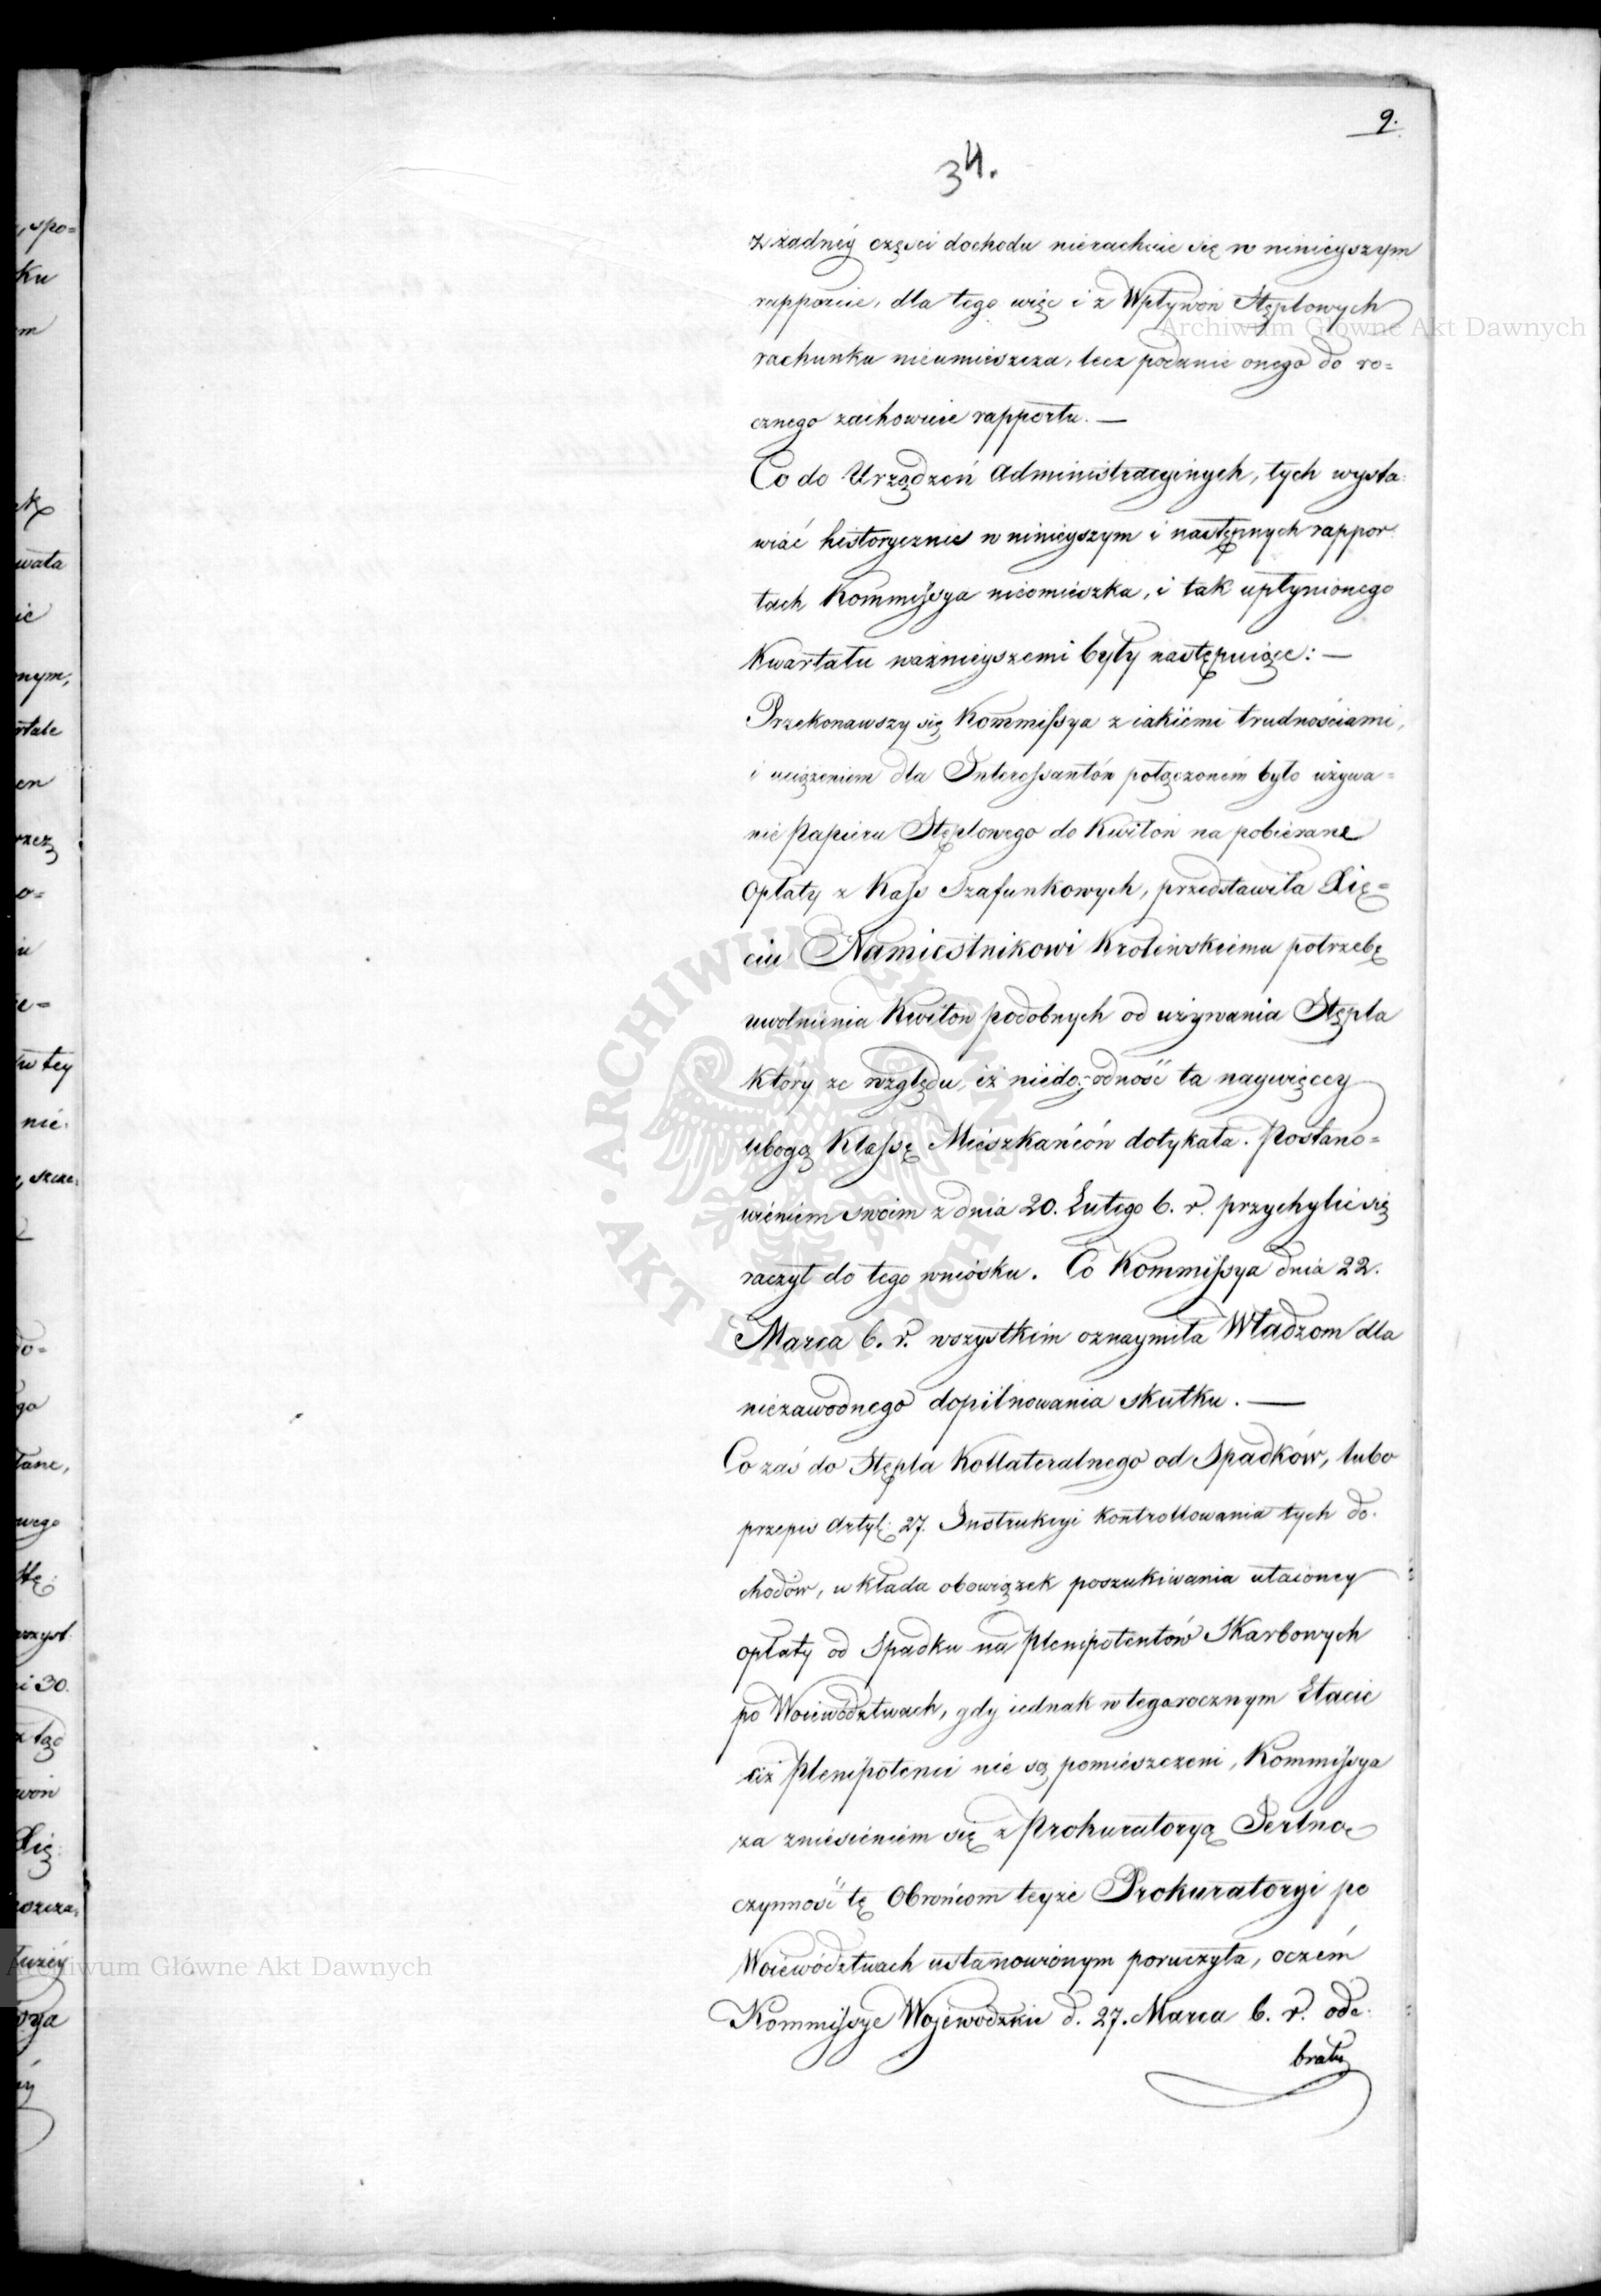 9.
34.
z żadnéy części dochodu nierachuie się w ninieyszym
rapporcie, dla tego więc i z Wpływów Stęplowych
rachunku nieumieszcza, lecz podanie onego do ro=
cznego zachowuie rapportu. —
Co do Urządzeń Administracyinych, tych wysta:
wiać historycznie w ninieyszym i następnych rappor
tach Kommissya nieomieszka, i tak upłynionego
Kwartału ważnieyszemi były następuiące: —
Przekonawszy się Kommissya z iakiemi trudnościami,
i uciążeniem dla Interessantów połączoném było używa=
nie Papieru Stęplowego do Kwitów na pobierane
opłaty z Kass Szafunkowych, przedstawiła Xię=
ciu Namiestnikowi Krolewskiemu potrzebę
uwolnienia Kwitów podobnych od używania Stępla
który ze względu, iż niedogodność ta naywięcey
ubogą Klassę Mieszkańców dotykała. Postano=
wieniem swoim z dnia 20. Lutego b. r. przychylić się
raczył do tego wniosku. Co Kommissya dnia 22.
Marca b. r. wszystkim oznaymiła Władzom dla
niezawodnego dopilnowania skutku. —
Co zaś do Stępla Kollateralnego od Spadków, lubo
przepis Artyk: 27. Instrukcyi kontrollowania tych do.
chodów, w kłada obowiązek poszukiwania utaioney
opłaty od Spadku na Plenipotentów Skarbowych
po Woiewództwach, gdy iednak w tegorocznym Etacie
ciż Plenipotenci nie są pomieszczeni, Kommissya
za zniesieniem się z Prokuratoryą Jeralną
czynność tę Obrońcom teyże Prokuratoryi po
Woiewództwach ustanowionym poruczyła, oczém
Kommissye Wojewodzkie d. 27. Marca b. r. ode.
brały
spo=
ku
wała
ie
nym,
en
o=
w tey
nie.
i 30.
Xię
Archiwum Główne Akt Dawnych
Archiwum Główne Akt Dawnych
· ARCHIWUM GŁÓWNE · AKT DAWNYCH